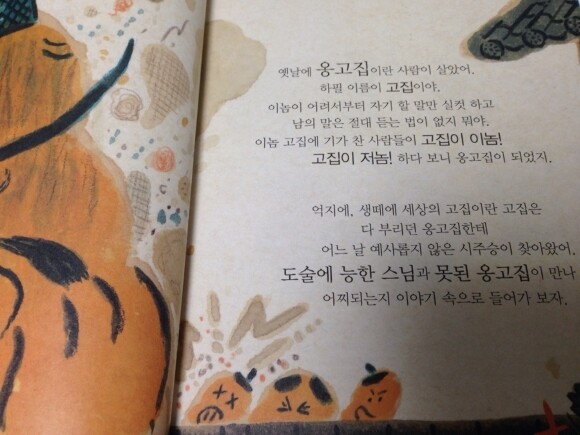 옛날에 옹고집이란 사람이 살았어.
하필 이름이 고집이야.
이놈이 어려서부터 자기 할 말만 실컷 하고
남의 말은 절대 듣는 법이 없지 뭐야.
이놈 고집에 기가 찬 사람들이 고집이 이놈!
고집이 저놈! 하다 보니 옹고집이 되었지.
억지에, 생떼에 세상의 고집이란 고집은
다 부리던 옹고집한테
어느 날 예사롭지 않은 시주승이 찾아왔어.
도술에 능한 스님과 못된 옹고집이 만나
어찌되는지 이야기 속으로 들어가 보자.